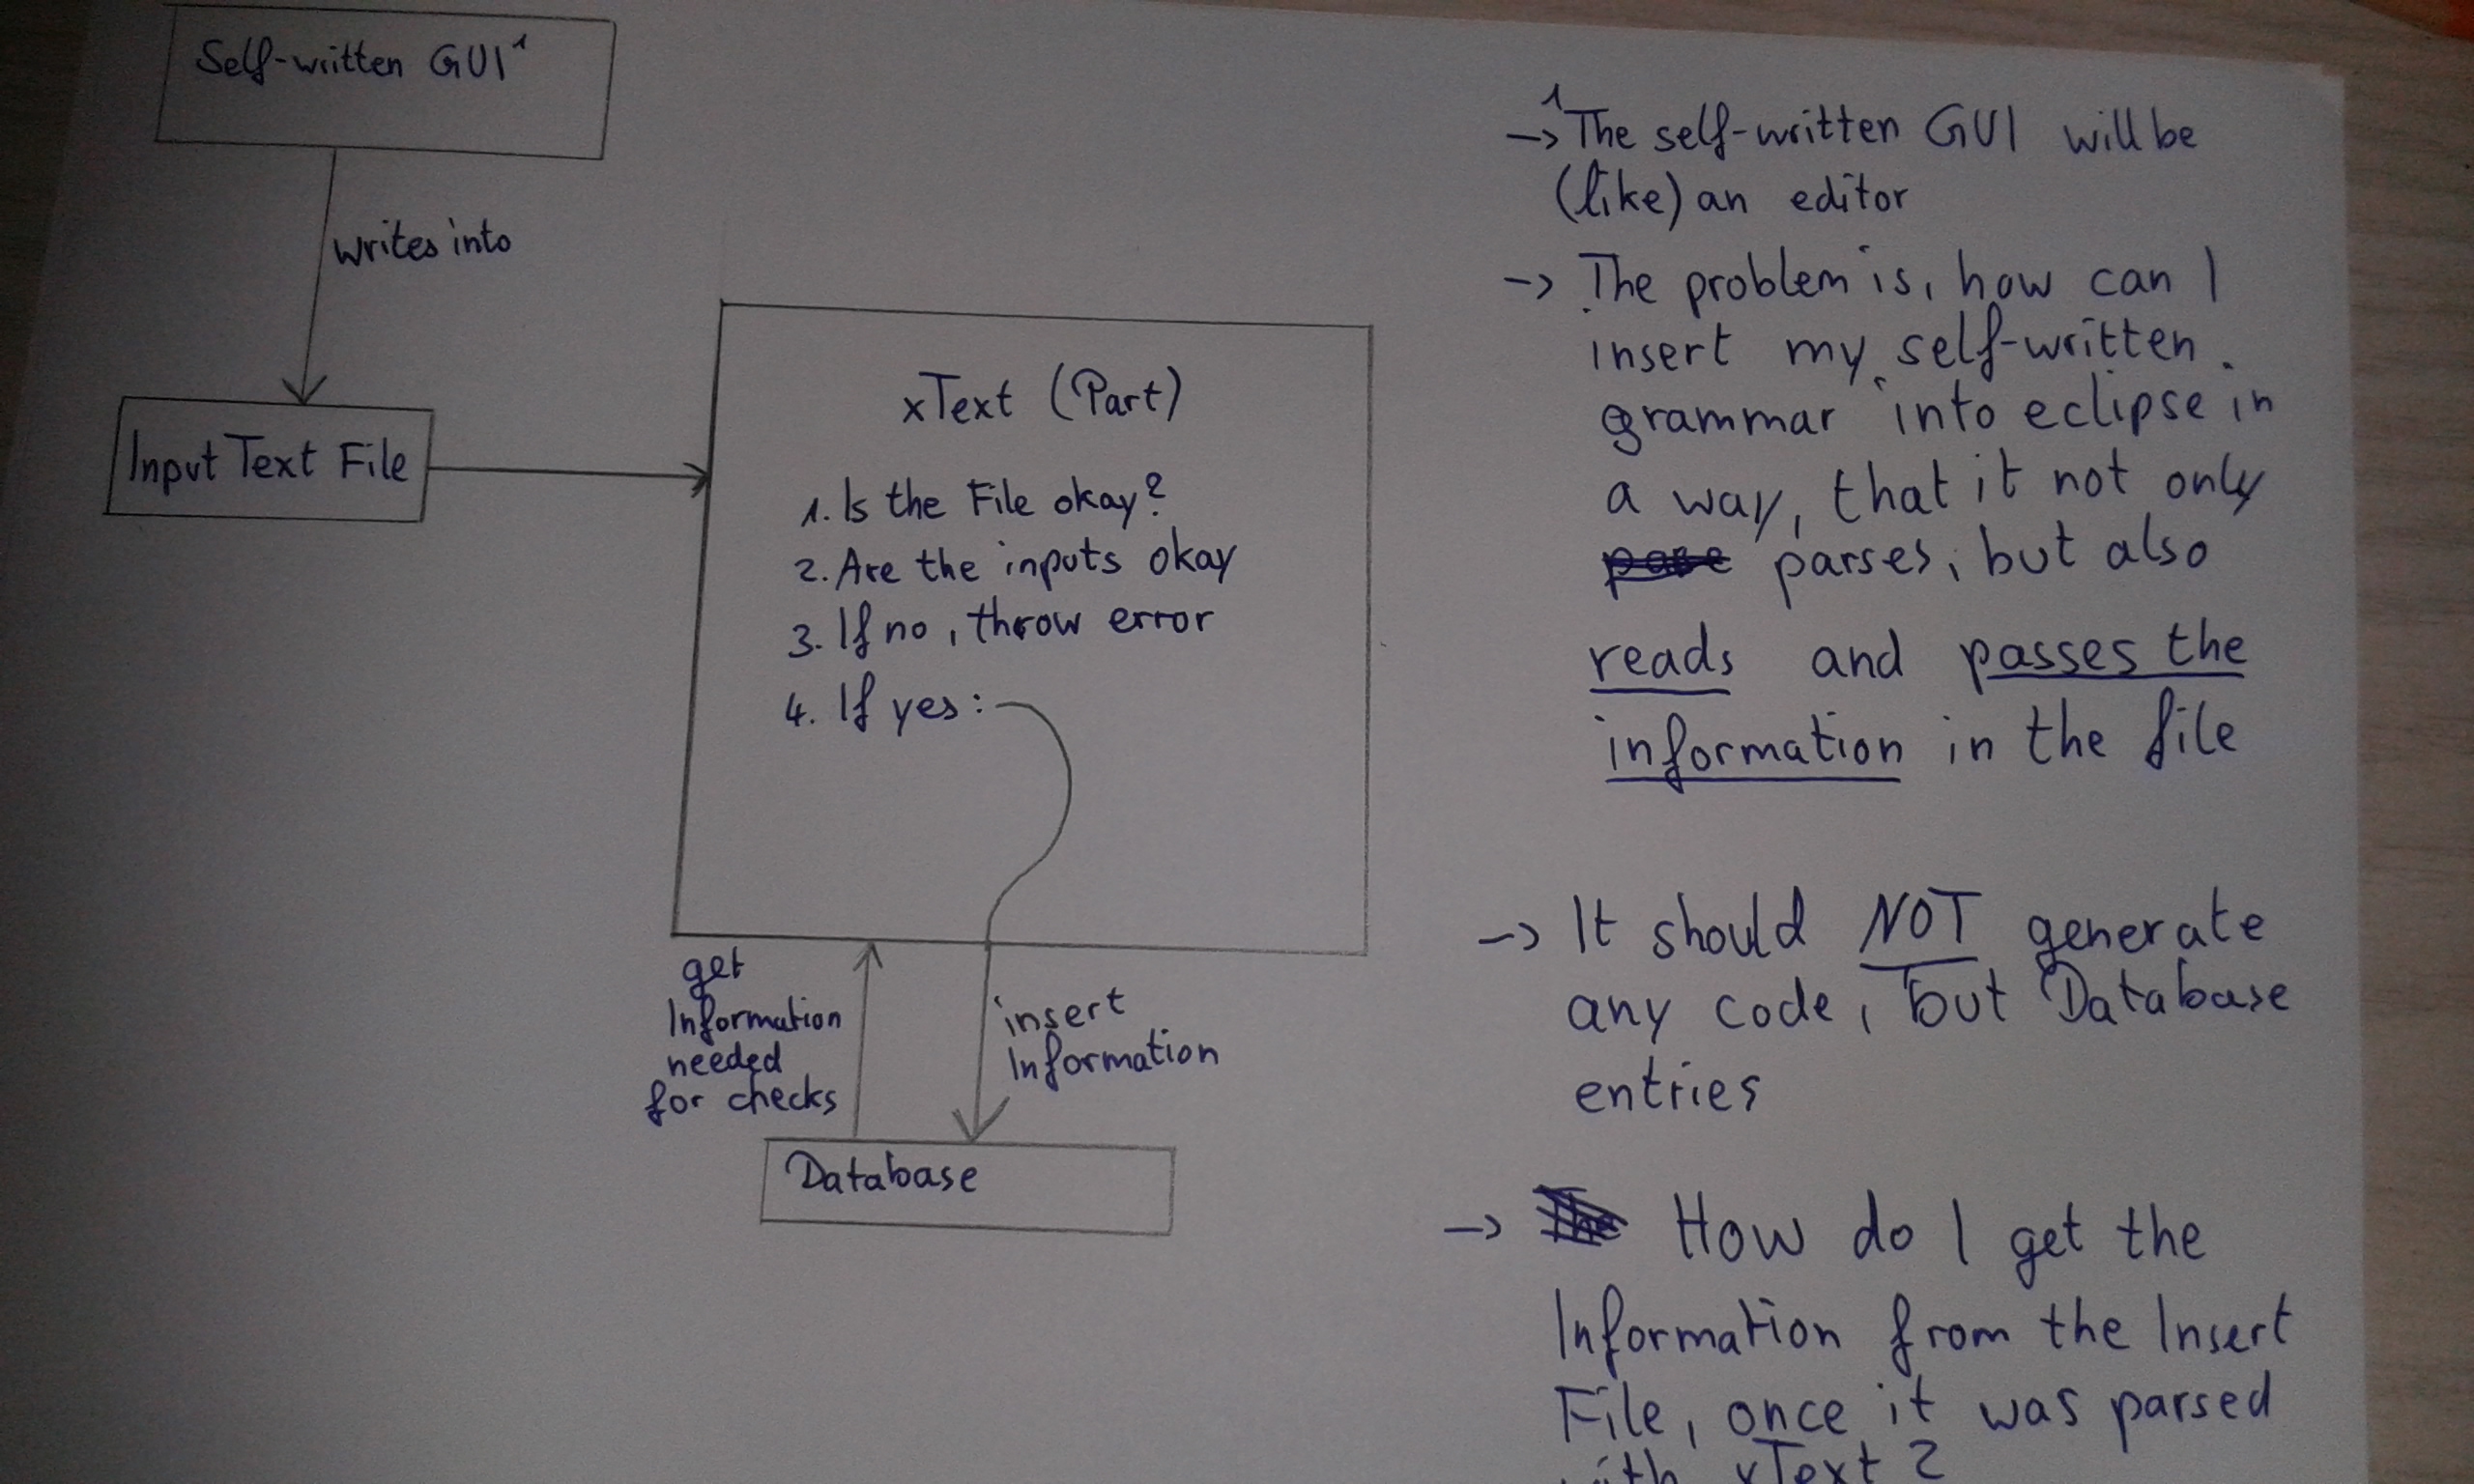 Self-written GUI¹
writes into
Input Text File
xText (Part)
1. Is the File okay?
2. Are the inputs okay
3. If no, throw error
4. If yes:
get
Information
needed
for checks
insert
Information
Database
-> ¹The self-written GUI will be
(like) an editor
-> The problem is, how can I
insert my self-written
grammar into eclipse in
a way, that it not only
parses, but also
reads and passes the
information in the file
-> It should NOT generate
any code, but Database
entries
-> How do I get the
Information from the Insert
File, once it was parsed
with xText?